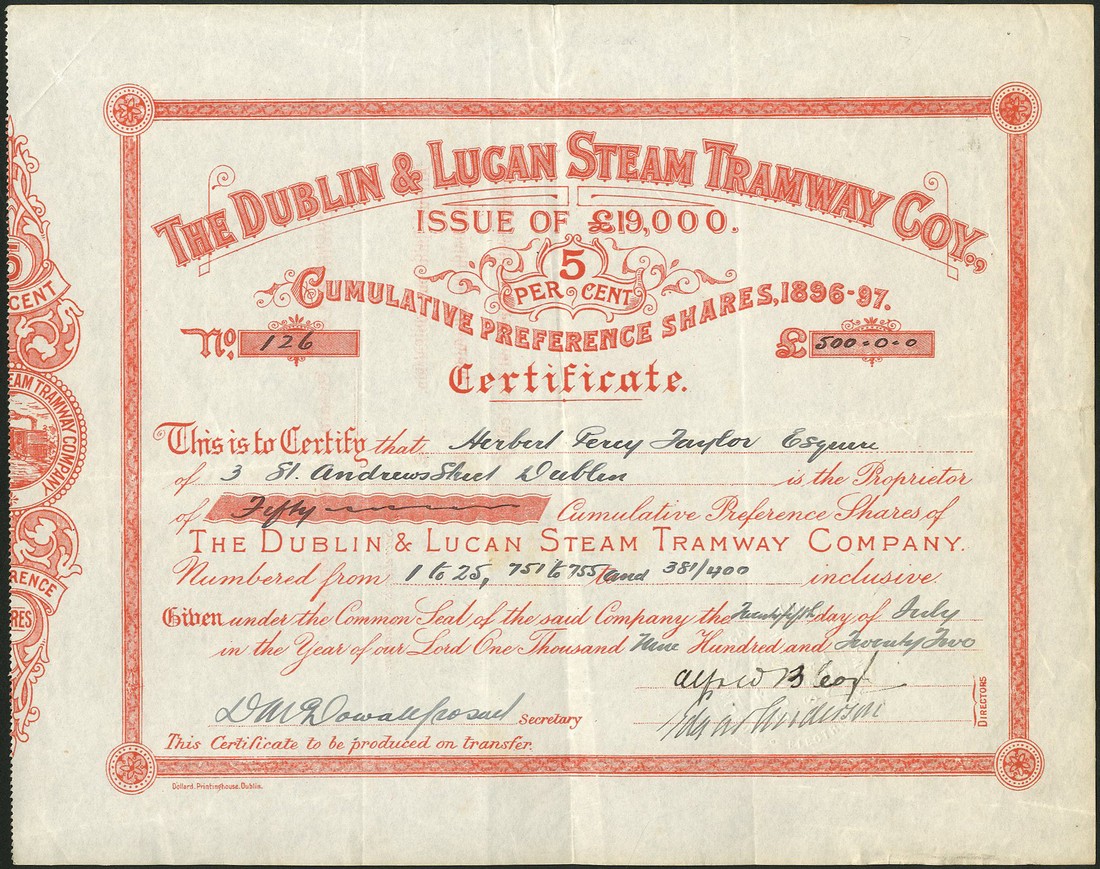 THE DUBLIN & LUCAN STEAM TRAMWAY COY.
ISSUE OF £19,000.
5
PER CENT
CUMULATIVE PREFERENCE SHARES, 1896-97.
No. 126
£ 500-0-0
Certificate.
This is to Certify that Herbert Percy Taylor Esquire
of 3 St. Andrews Street Dublin is the Proprietor
of Fifty Cumulative Preference Shares of
THE DUBLIN & LUCAN STEAM TRAMWAY COMPANY.
Numbered from 1 to 25, 751 to 755 and 381/400 inclusive.
Given under the Common Seal of the said Company the Twenty fifth day of July
in the Year of our Lord One Thousand Nine Hundred and Twenty Two
Alfred B
Anderson
DIRECTORS
Secretary
This Certificate to be produced on transfer.
Dollard, Printinghouse, Dublin.
5
CENT
EAM TRAMWAY COMPANY
ERENCE
RES